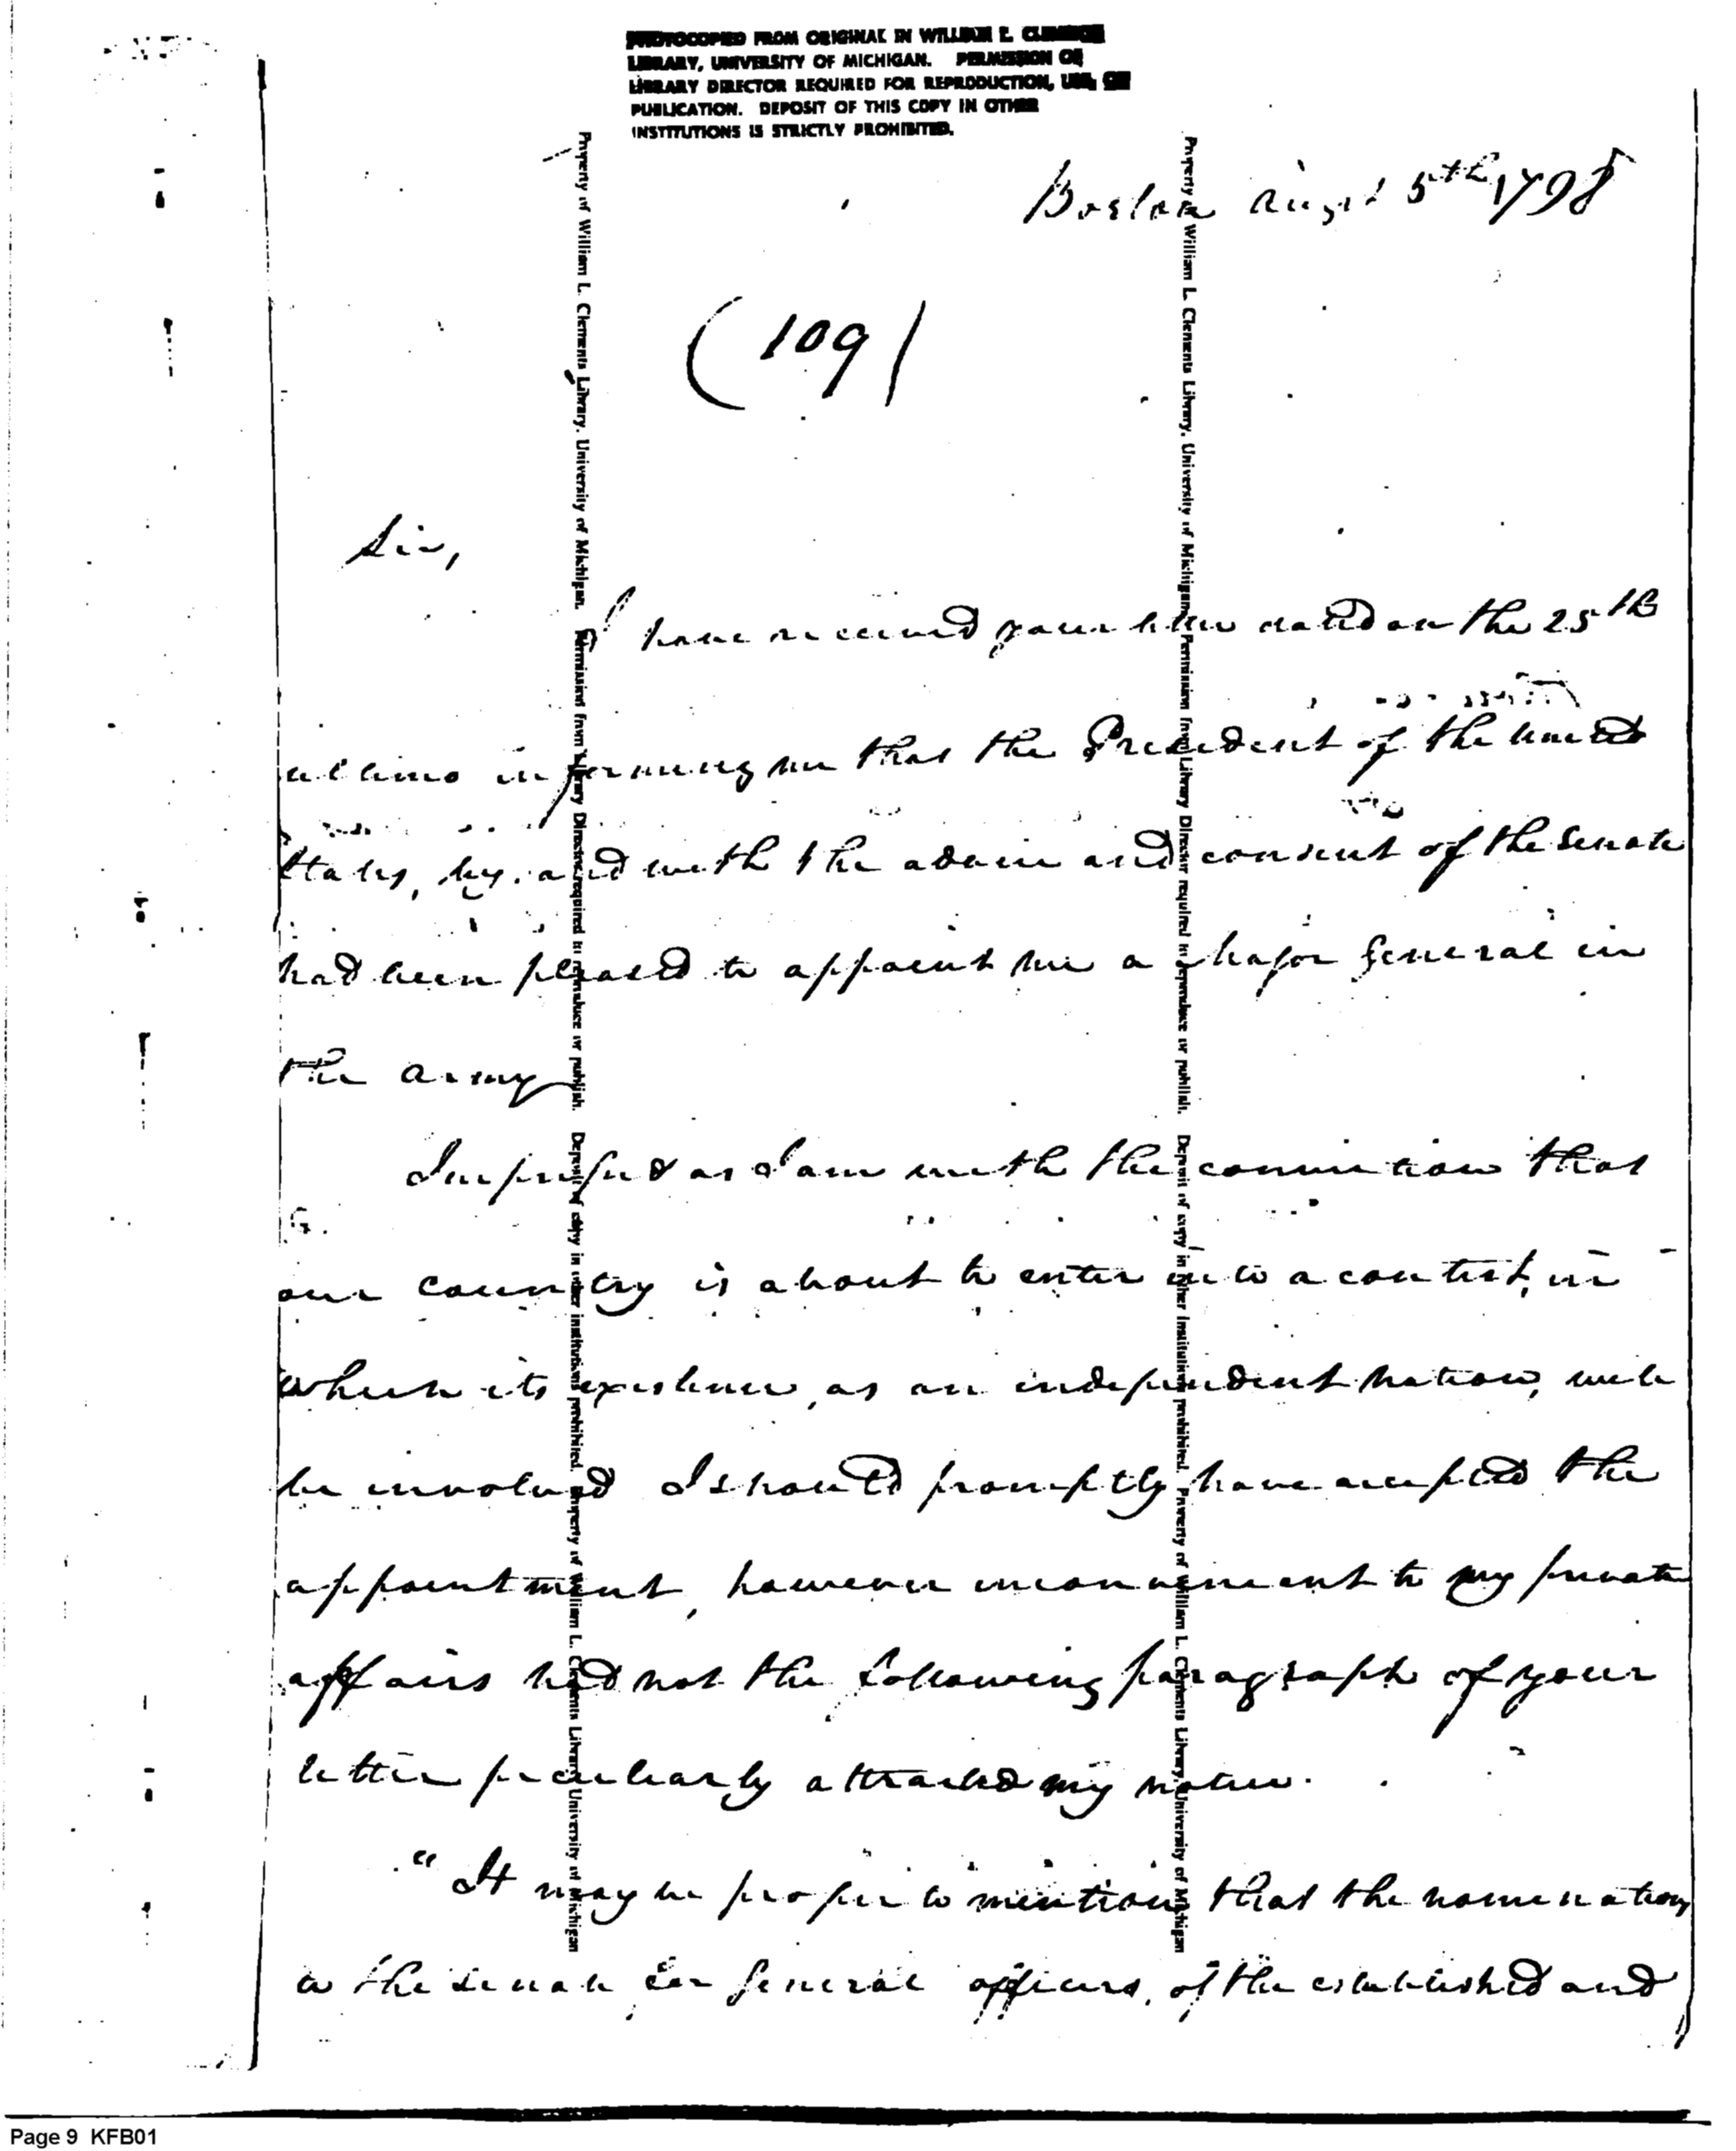 PHOTOCOPIED FROM ORIGINAL IN WILLIAM L. CLEMENTS
LIBRARY, UNIVERSITY OF MICHIGAN. PERMISSION OF
LIBRARY DIRECTOR REQUIRED FOR REPRODUCTION, USE, OR
PUBLICATION. DEPOSIT OF THIS COPY IN OTHER
INSTITUTIONS IS STRICTLY PROHIBITED.
Boston August 5th 1798
(109)
Sir,
I have received your letter dated on the 25th
ultimo informing me that the President of the United
States, by, and with the advice and consent of the Senate
had been pleased to appoint me a Major General in
the army
Impressed as I am with the conviction that
our country is about to enter into a contest, in
which its existence, as an independent nation, will
be involved I should promptly have accepted the
appointment, however inconvenient to my private
affairs had not the following paragraph of your
letter peculiarly attracted my notice.
"It may be proper to mention that the nomination
to the Senate for General officers, of the established and
Property of William L. Clements Library, University of Michigan. Permission from Library Director required to reproduce or publish. Deposit of copy in other institutions prohibited. Property of William L. Clements Library, University of Michigan
Property of William L. Clements Library, University of Michigan. Permission from Library Director required to reproduce or publish. Deposit of copy in other institutions prohibited. Property of William L. Clements Library, University of Michigan
Page 9 KFB01